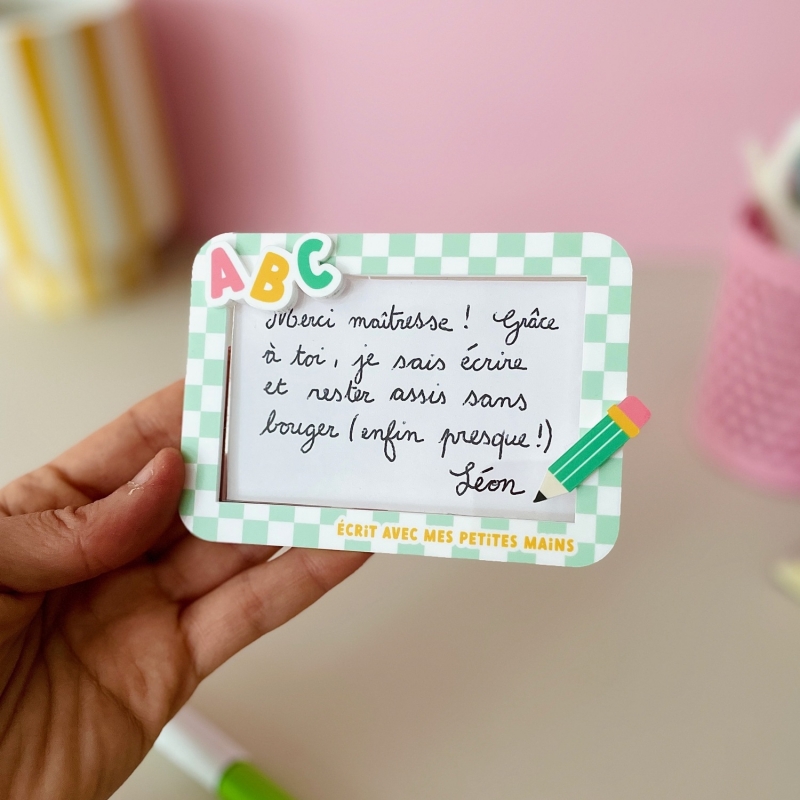 ABC
Merci maîtresse ! Grâce
à toi, je sais écrire
et rester assis sans
bouger (enfin presque !)
Léon
ÉCRIT AVEC MES PETITES MAINS